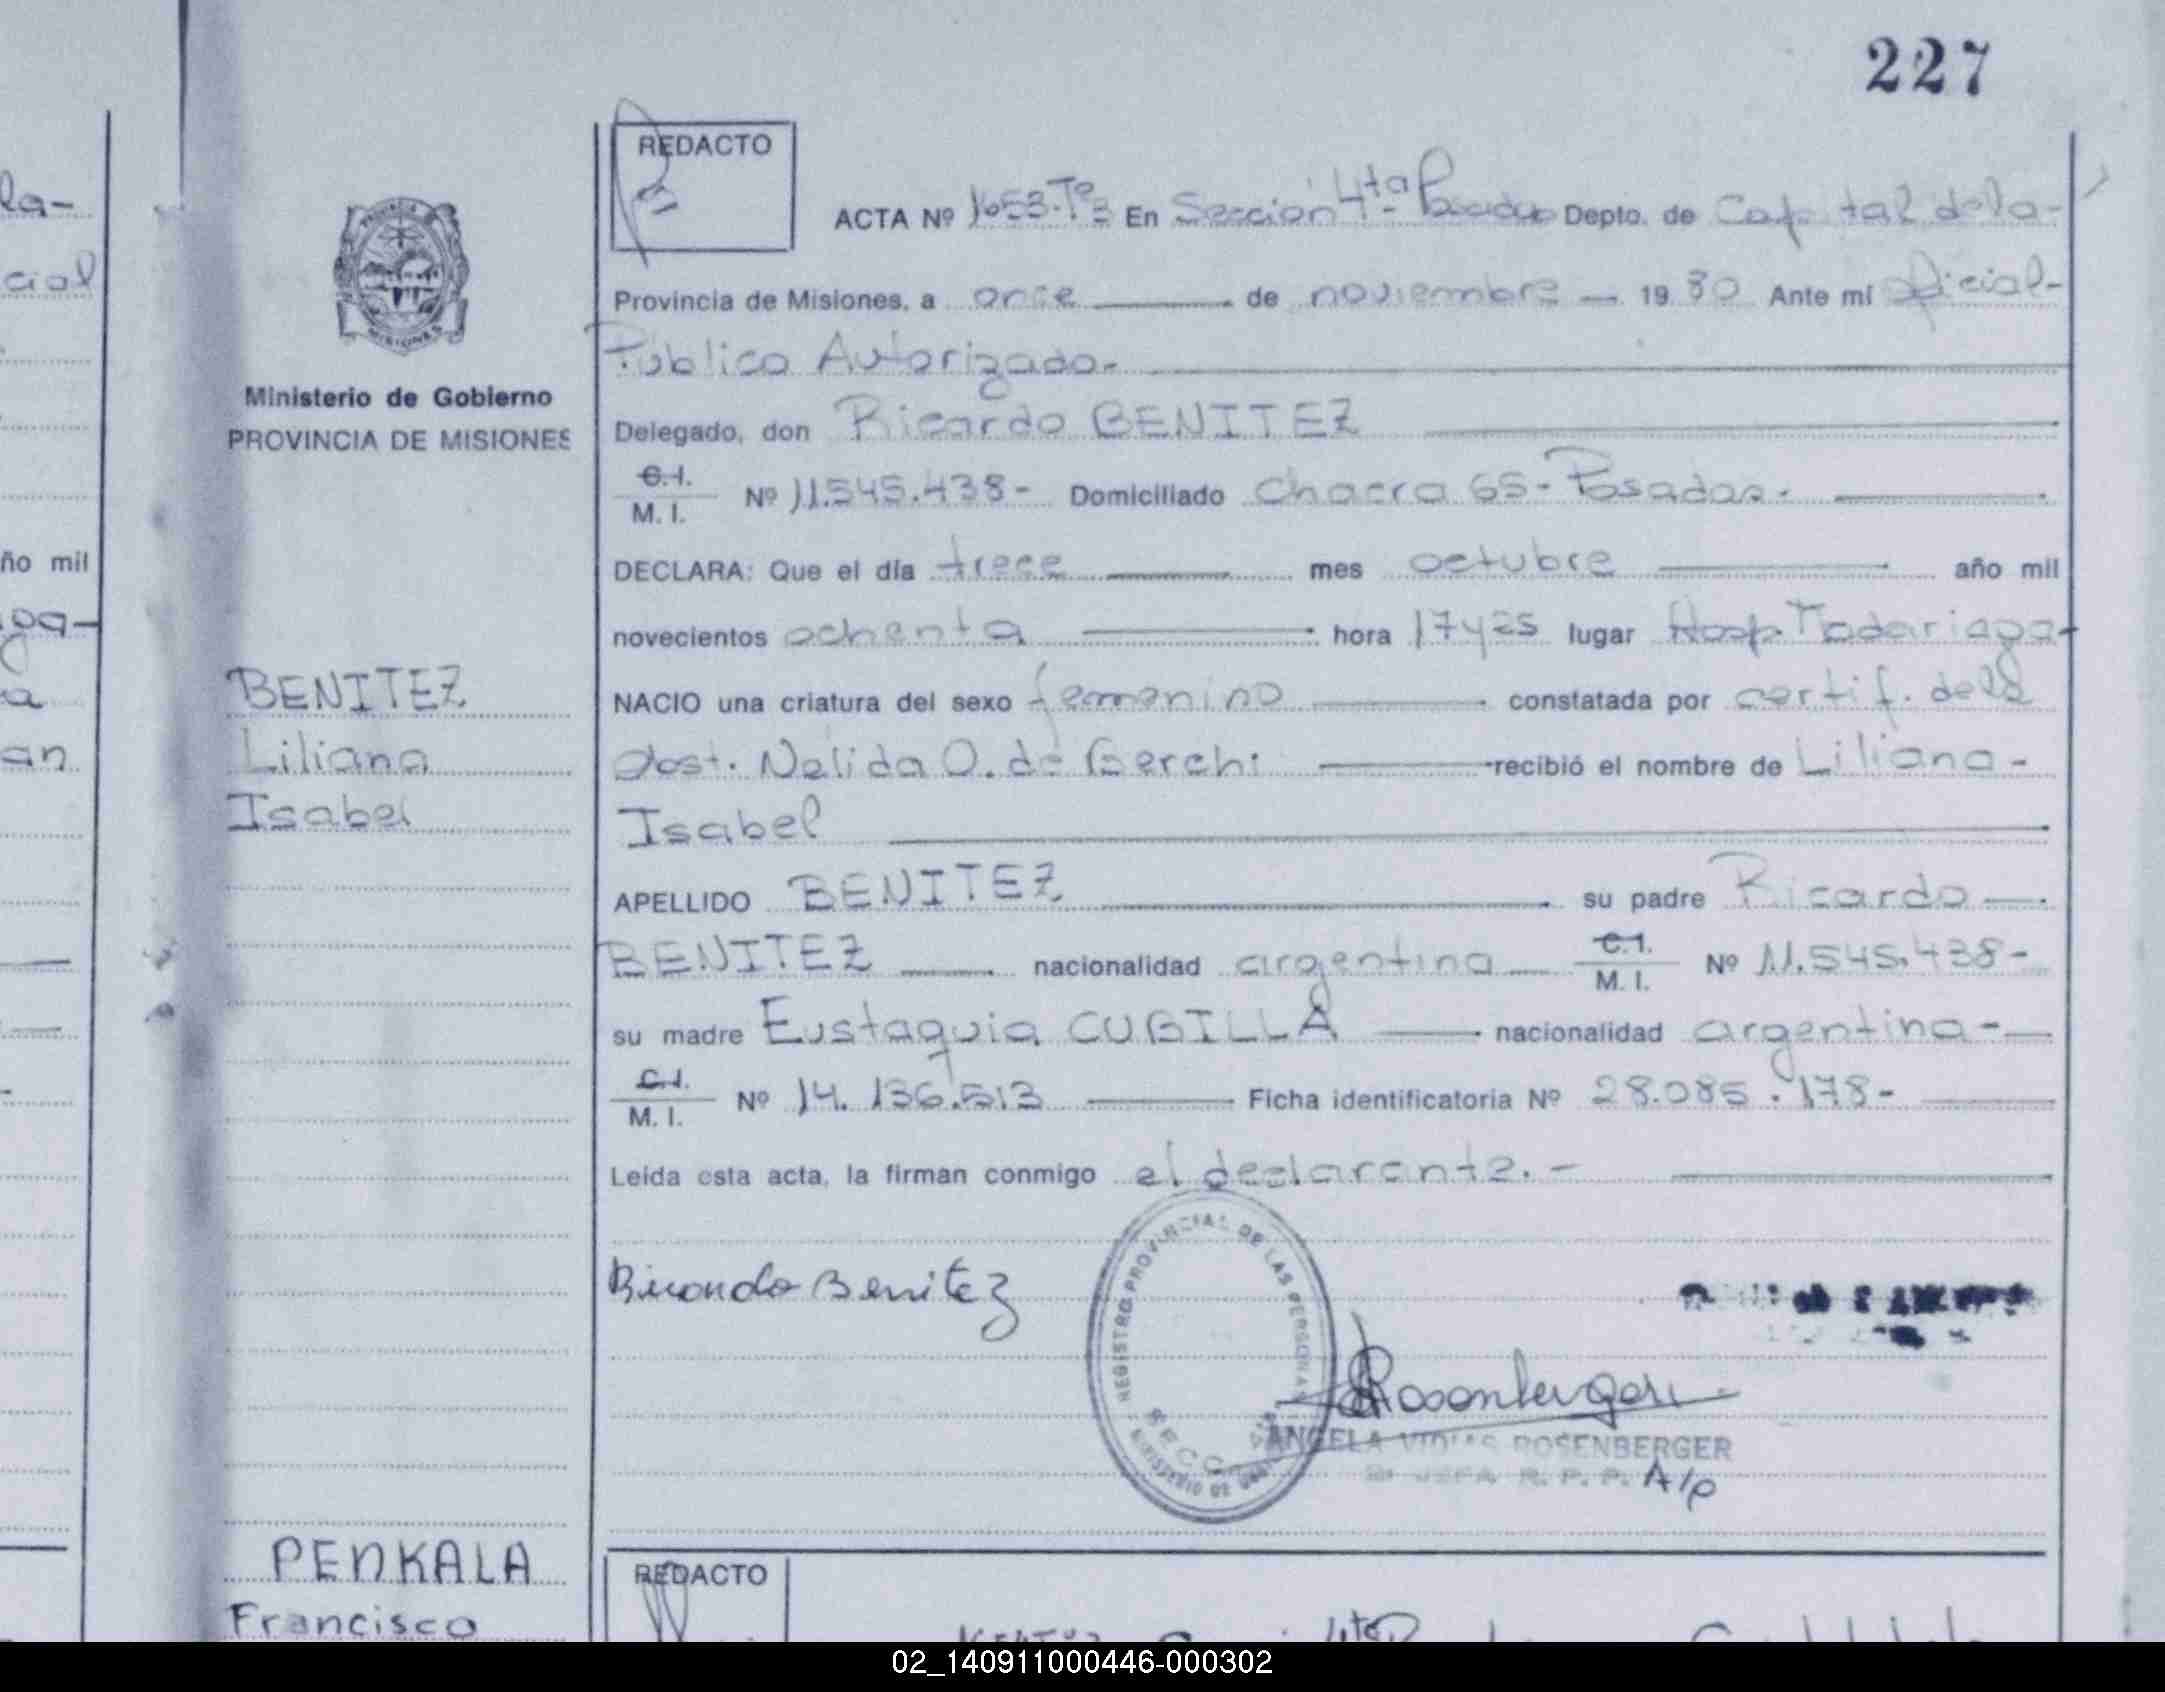 227
la-
cial
ño mil
iaga-
a
an
Ministerio de Gobierno
PROVINCIA DE MISIONES
BENITEZ
Liliana
Isabel
REDACTO
ACTA Nº 1653-Tº3 En Sección 4ta Posadas Depto. de Capital de la-
Provincia de Misiones, a once de noviembre 1980 Ante mi oficial-
Público Autorizado.
Delegado, don Ricardo BENITEZ
C.I. M. I. Nº 11.545.438- Domiciliado Chacra 65-Posadas.
DECLARA: Que el día trece mes octubre año mil
novecientos ochenta hora 17y25 lugar Hosp. Madariaga-
NACIO una criatura del sexo femenino constatada por certif. de la
Obst. Nelida O. de Gerchi recibió el nombre de Liliana-
Isabel
APELLIDO BENITEZ su padre Ricardo
BENITEZ nacionalidad argentina C.I. M. I. Nº 11.545.438-
su madre Eustaquia CUBILLA nacionalidad argentina-
C.I. M. I. Nº 14.136.513 Ficha identificatoria Nº 28.085.178-
Leída esta acta, la firman conmigo el declarante.-
Ricardo Benitez
REGISTRO PROVINCIAL DE LAS PERSONAS
SECC.
MINISTERIO DE
Rosenberger
ANGELA ROSENBERGER
JEFA R. P. P. A/p
PENKALA
Francisco
REDACTO
02_140911000446-000302